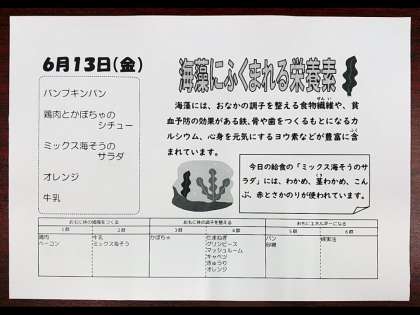 6月13日(金)
パンプキンパン
鶏肉とかぼちゃの
シチュー
ミックス海そうの
サラダ
オレンジ
牛乳
海藻にふくまれる栄養素
海藻には、おなかの調子を整える食物繊維や、貧
血予防の効果がある鉄、骨や歯をつくるもとになるカ
ルシウム、心身を元気にするヨウ素などが豊富に含
まれています。
今日の給食の「ミックス海そうのサ
ラダ」には、わかめ、茎わかめ、こん
ぶ、赤とさかのりが使われています。
おもに体の組織をつくる
おもに体の調子を整える
おもにエネルギーになる
1群
2群
3群
4群
5群
6群
鶏肉
ベーコン
牛乳
ミックス海そう
かぼちゃ
たまねぎ
グリンピース
マッシュルーム
キャベツ
きゅうり
オレンジ
パン
砂糖